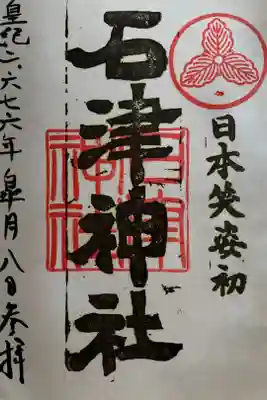 日本笑姿初
石津神社
皇紀二、六七六年皐月八日参拝